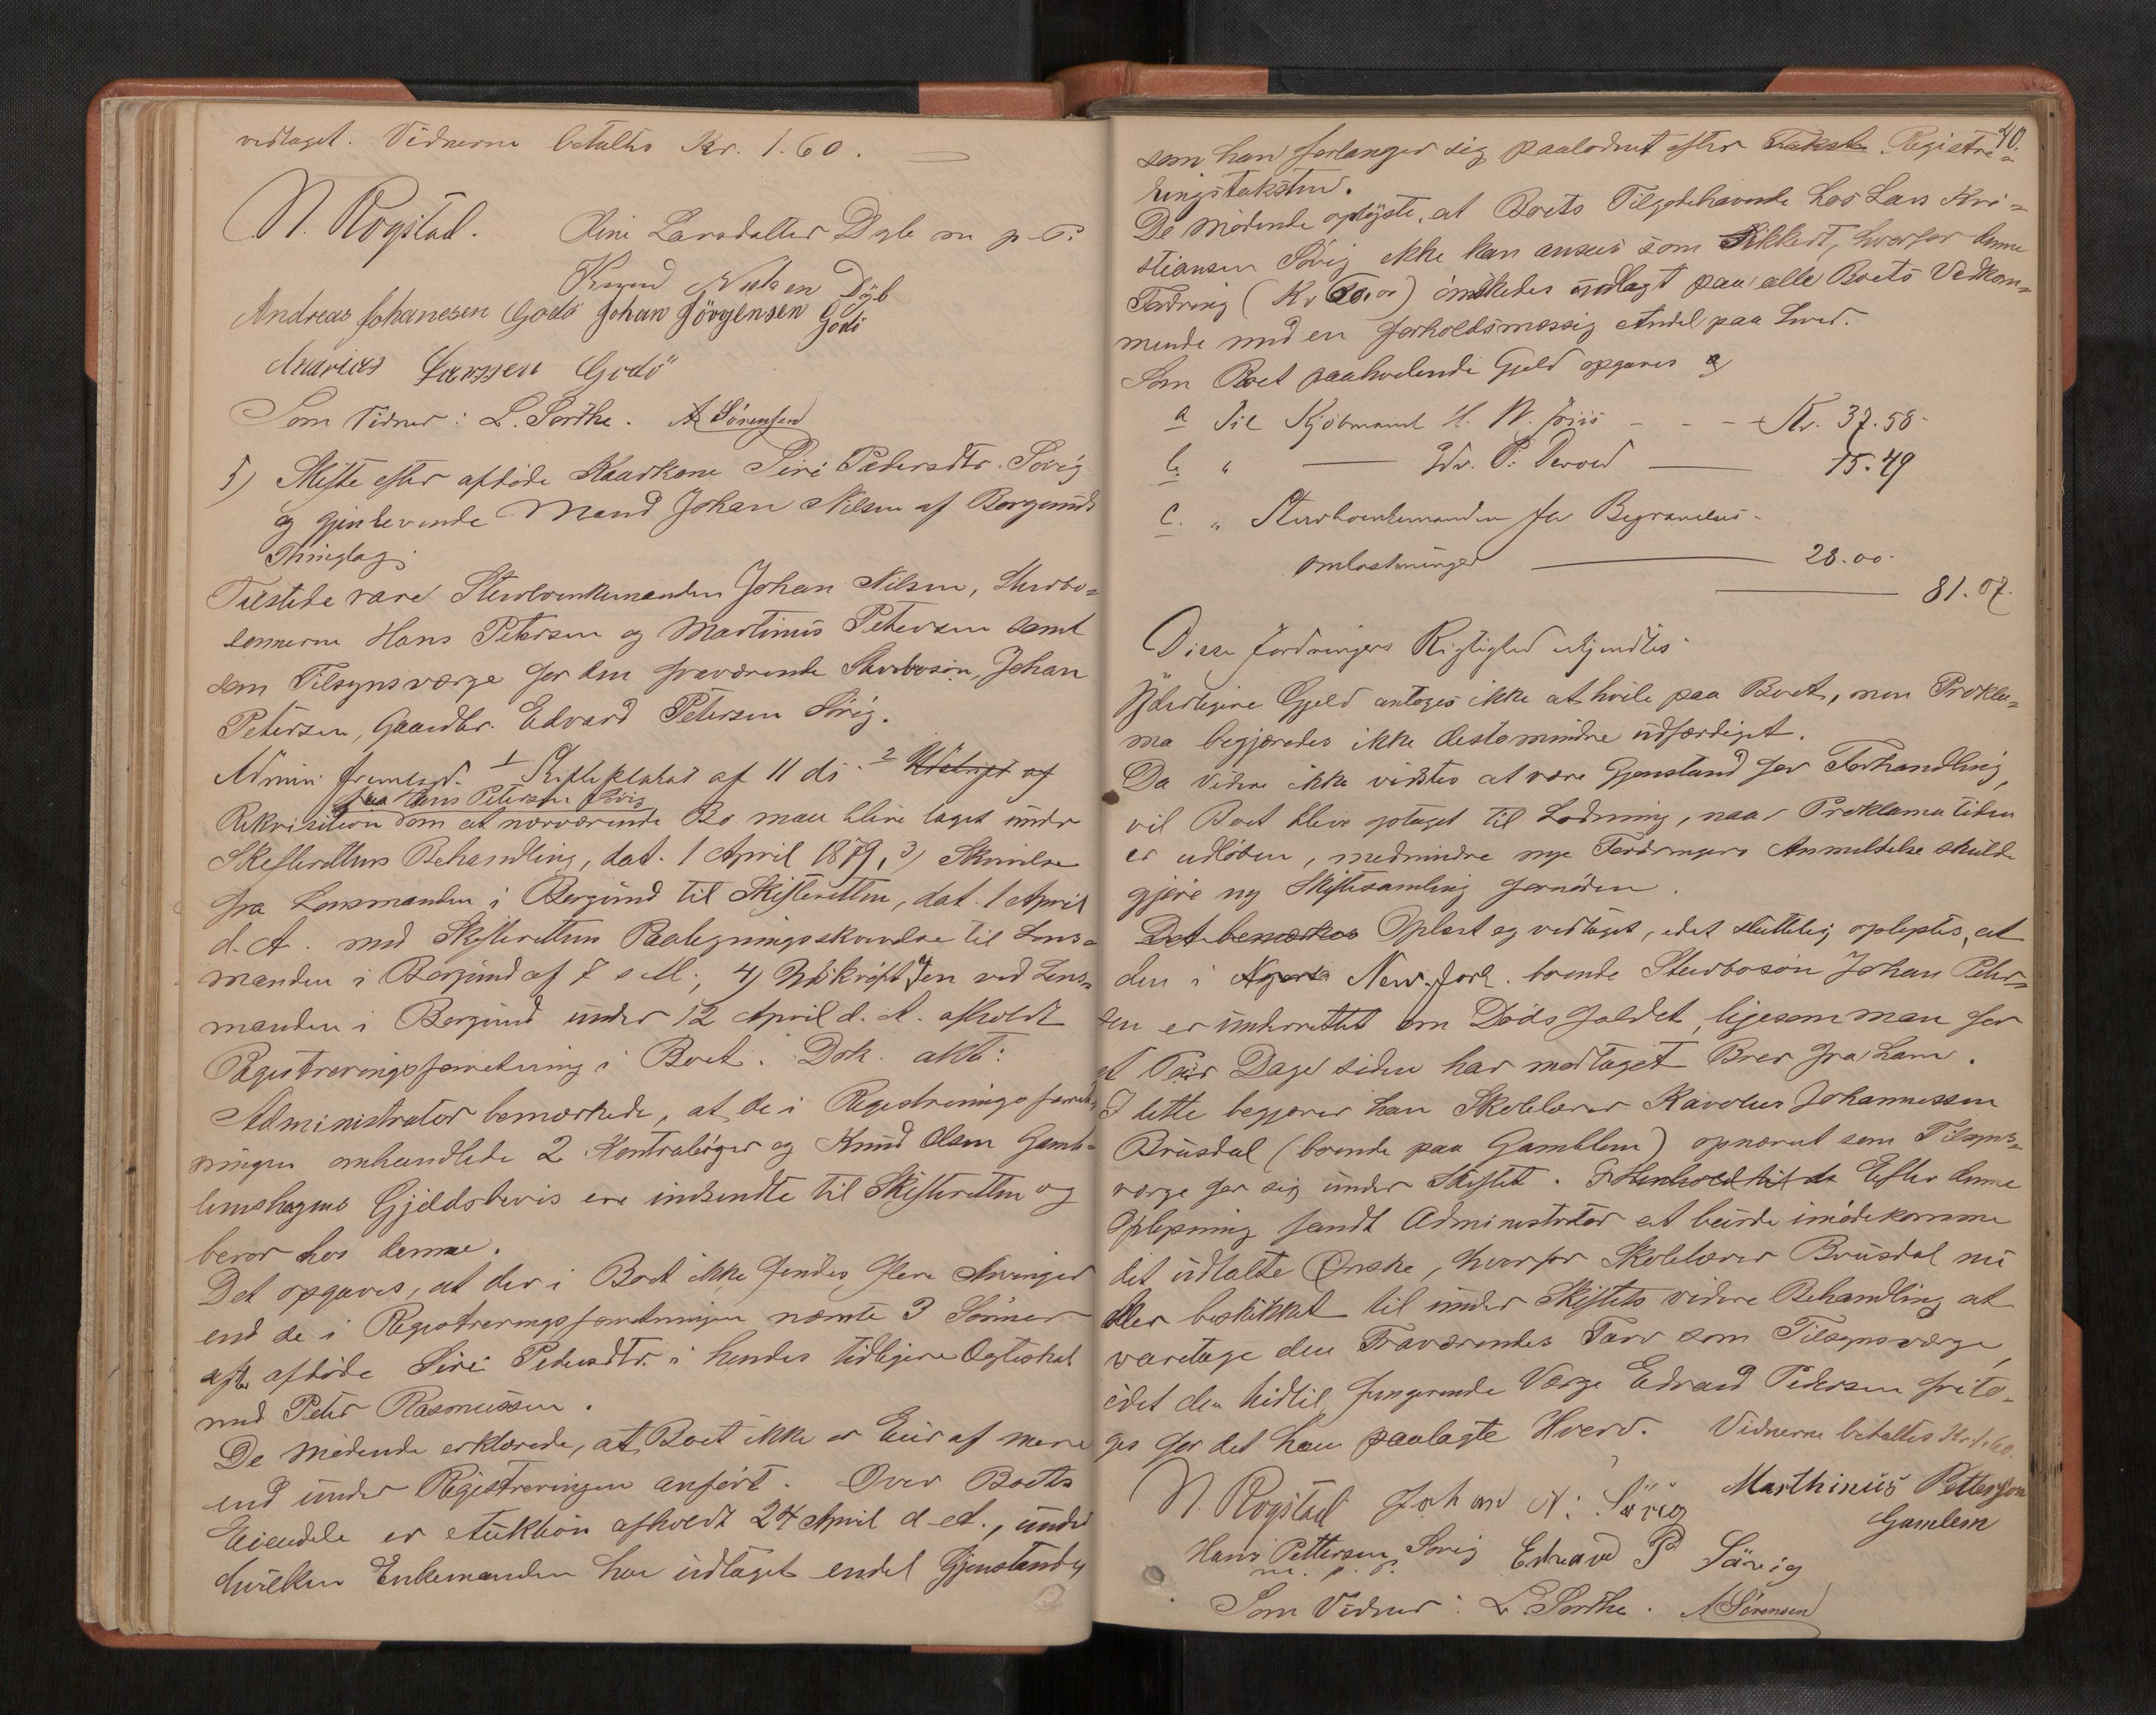 vedtaget. Vidnerne betaltes Kr. 1.60.
N. Rogstad. Oline Larsdatter Dyb m p. P.
Knud Dyb
Andreas Johanesen Godö Johan Jörgensen Godö
Andrias Larssen Godö
Som Vidner: L. Sorthe. A Sörensen
5) Skifte efter afdøde Kaarkone Siri Pedersdtr. Sövig
og gjenlevende Mand Johan Nilsen af Borgunds
Thinglag.
Tilstede vare Stervboenkemanden Johan Nilsen, Stervbo-
sønnerne Hans Petersen og Martinus Petersen samt
som Tilsynsværge for den fraværende Stervbosøn, Johan
Petersen, Gaardbr. Edvard Petersen Sövig.
Admin. fremlagde 1 Skifteplakat af 11 ds. 2 Udskrift af
fra Hans Petersen Sövig
Rekvisition om at nærværende Bo maa blive taget under
Skifterettens Behandling, dat. 1 April 1879, 3) Skrivelse
fra Lensmanden i Borgund til Skifteretten, dat. 1 April
d. A. med Skifterettens Paategningsskrivelse til Lens-
manden i Borgund af 7 s M., 4) Udskrift af en ved Lens-
manden i Borgund under 12 April d. A. afholdt
Registreringsforretning i Boet. Dok. akt:
Administrator bemærkede, at de i Registreringsforret-
ningen omhandlede 2 Kontrabøger og Knud Olsen Gamb-
lemshagens Gjeldsbevis ere indsendte til Skifteretten og
beror hos denne.
Det opgaves, at der i Boet ikke findes flere Arvinger
end de i Registreringsforretningen nævnte 3 Sønner
efter afdøde Siri Pedersdtr. i hendes tidligere Ægteskab
med Peter Rasmussen.
De mødende erklærede, at Boet ikke er Eier af mere
end under Registreringen anført. Over Boets
Eiendele er Auktion afholdt 24 April d. A., under
hvilken Enkemanden har udtaget endel Gjenstande,
40.
som han forlanger sig paalodnet efter Takste Registre-
ringstaksten.
De mødende oplyste, at Boets Tilgodehavende hos Lars Kri-
stiansen Sövig ikke kan ansees som sikkert, hvorfor denne
Fordring (Kr 60.00) ønskedes udlagt paa alle Boets Vedkom-
mende med en forholdsmæssig Andel paa hver.
Som Boet paahvilende Gjeld opgaves
a Til Kjöbmand H. W. Friis - - - Kr. 37.58
b. " — Edv. P. Devold — 15.49
c. " Stervboenkemanden for Begravelses-
omkostninger — 28.00
— 81.07.
Disse Fordringers Rigtighed erkjendtes.
Yderligere Gjeld antages ikke at hvile paa Boet, men Prokla-
ma begjæredes ikke destomindre udfærdiget.
Da videre ikke vidstes at være Gjenstand for Forhandling,
vil Boet blive optaget til Lodning, naar Proklamatiden
er udløben, medmindre nye Fordringers Anmeldelse skulde
gjøre ny Skiftesamling fornøden.
Det bemærkes Oplæst og vedtaget, idet sluttelig oplystes, at
den i New-Jork boende Stervbosøn Johan Peter-
sen er underrettet om Dødsfaldet, ligesom man for
et Par Dage siden har modtaget Brev fra ham.
I dette begjærer han Skolelærer Karolus Johannessen
Brusdal (boende paa Gamblem) opnævnt som Tilsyns-
værge for sig under Skiftet. I Henhold til de Efter denne
Oplysning fandt Administrator at burde imødekomme
det udtalte Ønske, hvorfor Skolelærer Brusdal nu
blev beskikket til under Skiftets videre Behandling at
varetage den Fraværendes Tarv som Tilsynsværge,
idet den hidtil fungerende Værge Edvard Pedersen frita-
ges for det ham paalagte Hverv. Vidnerne betaltes Kr. 1.60.
N. Rogstad Johan N: Sörig Marthinus Petterson
Gamlem
Hans Pettersen Sovig Edvard P Sävig
m. p. P.
Som Vidner: L. Sorthe. A Sörensen